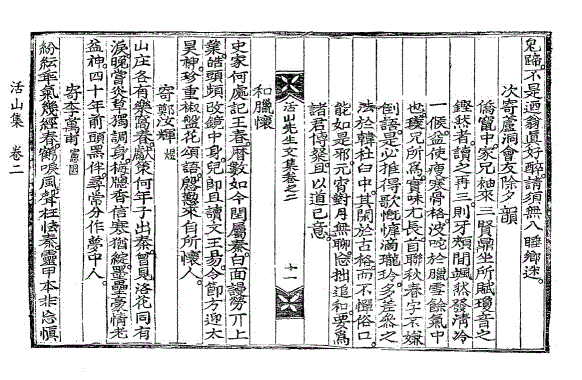 鬼躋不是逈翁眞好醉請須無八睡鄕迷
次寄蘆洞會友除夕韻
僑寓中家兄柚來三賢鼎坐所賦瓊音之
鏗然者讀之再三則牙頰間颯然發淸冷
一候益使瘦寒骨格波咜於臘雪餘氣中
也瓊兄所爲實味尤長首聯秋春字不嫌
倒語是必推得歌慨慷滴瓏玲多差爲之
法於韓杜臼中其閑於古格而不憚俗口
能如是邪元宵對月無聊戀拙追和要爲
諸君博粲且以道己意
和臘懷
史家何處記王春曆數如今閏屬秦白面謾勞丌上
業皓頭頻改鏡中身兒郞且讀文王易令節方迎太
昊神珍重椒盤花頌語慇懃來自所懷人
寄鄭汝輝 煃
山庄各有樂窩春獻策何年子出秦曾見洛花同有
淚晩嘗炎草獨調身梅牕香信寒猶綻墨壘豪情老
益神四十年前頭黑伴尋常分作夢中人
寄李萬甫
紛紜乖氣幾經春鶴唳風聲枉怯秦靈甲本非忘愼
活山先生文集卷之二
十一
活山集 卷二